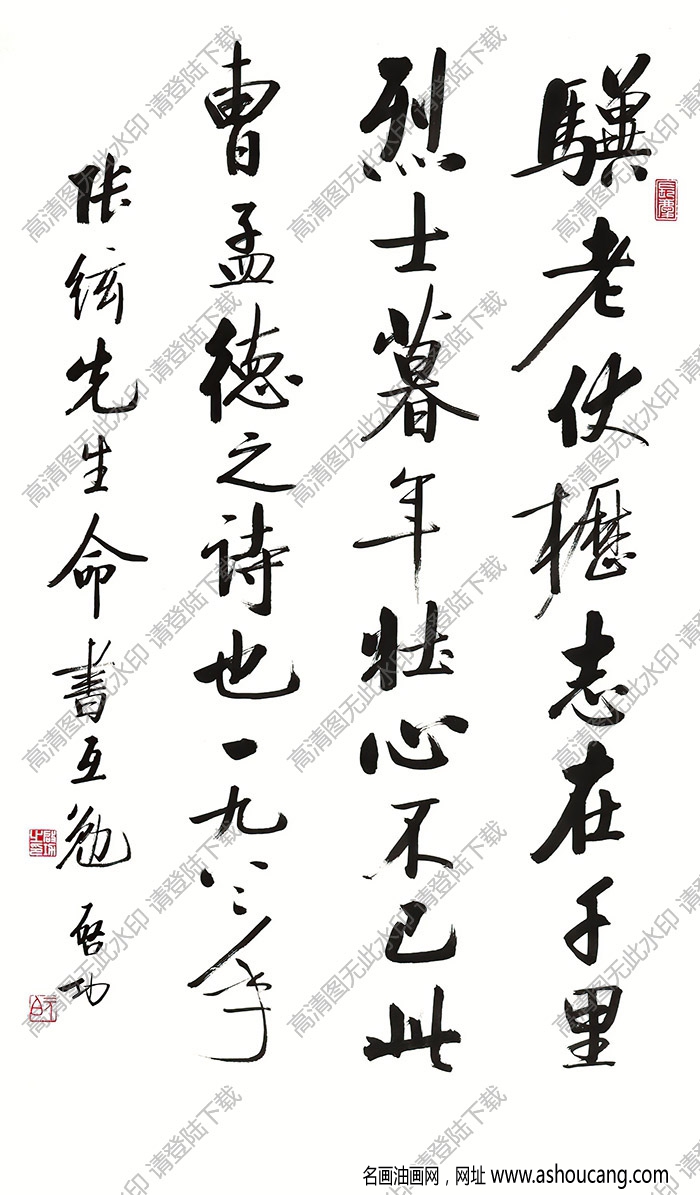 驥老伏櫪志在千里
烈士暮年壯心不已此
曹孟德之詩也一九八二年
張絃先生命書互勉 啓功
高清图无此水印 请登陆下载
名画油画网，网址 www.ashoucang.com